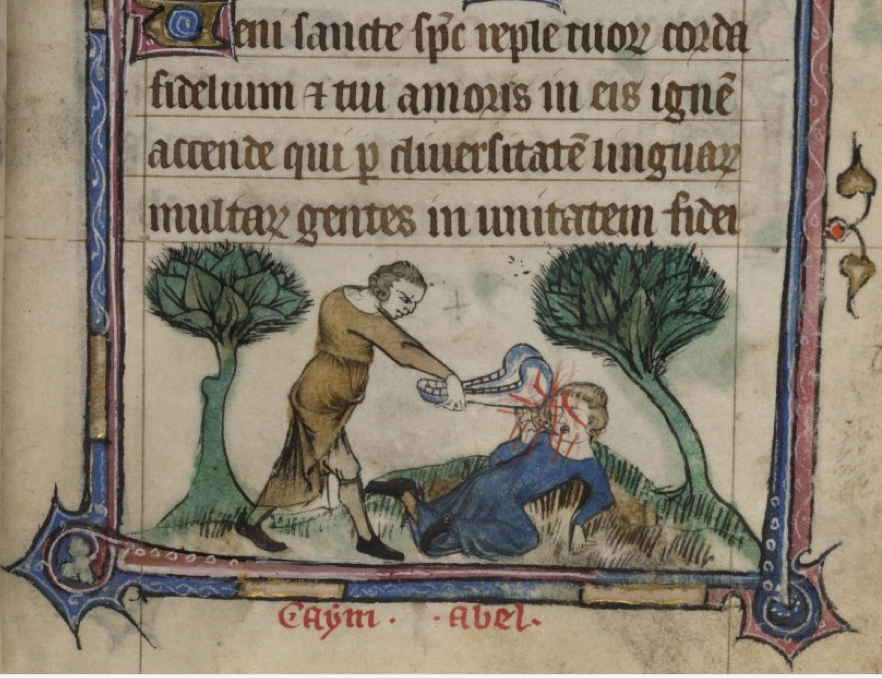 Veni sancte sp̄c reple tuoꝝ corda
fidelium ⁊ tui amoris in eis ignē
accende qui p̲ diuersitatē linguaꝝ
multaꝝ gentes in unitatem fidei
Caym · · Abel ·